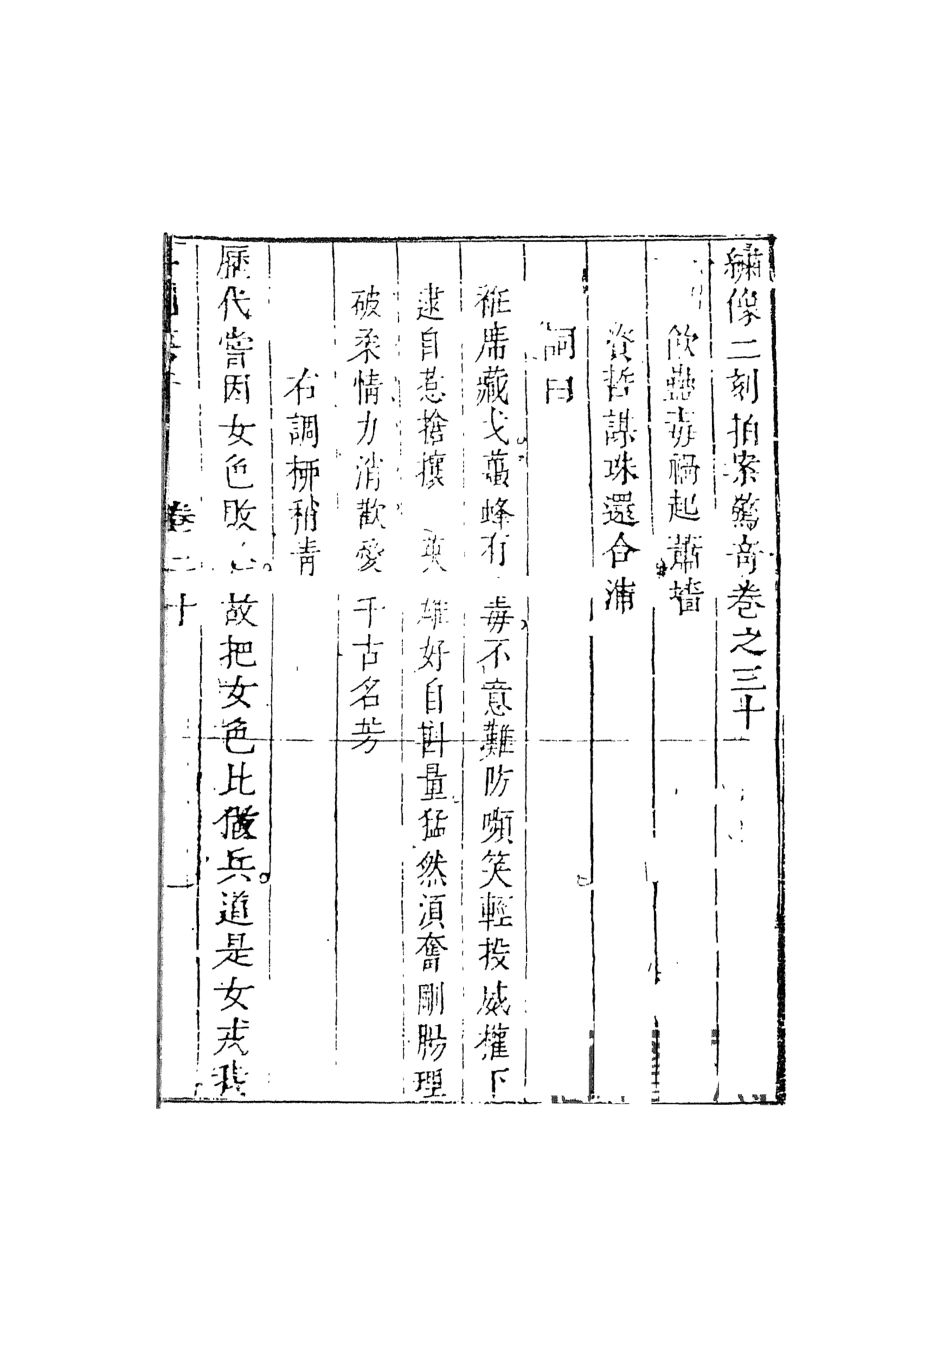 繡像二刻拍案驚奇卷之三十
飲蠱毒禍起蕭墻
資哲謀珠還合浦
詞曰
袵席藏戈蠆蜂有毒不意難防嚬笑輕投威權下
逮自惹搶攘 英雄好自斟量猛然須奮剛腸理
破柔情力消歡愛千古名芳
右調柳稍青
歷代嘗因女色敗亡故把女色比做兵道是女戎我
卷二十